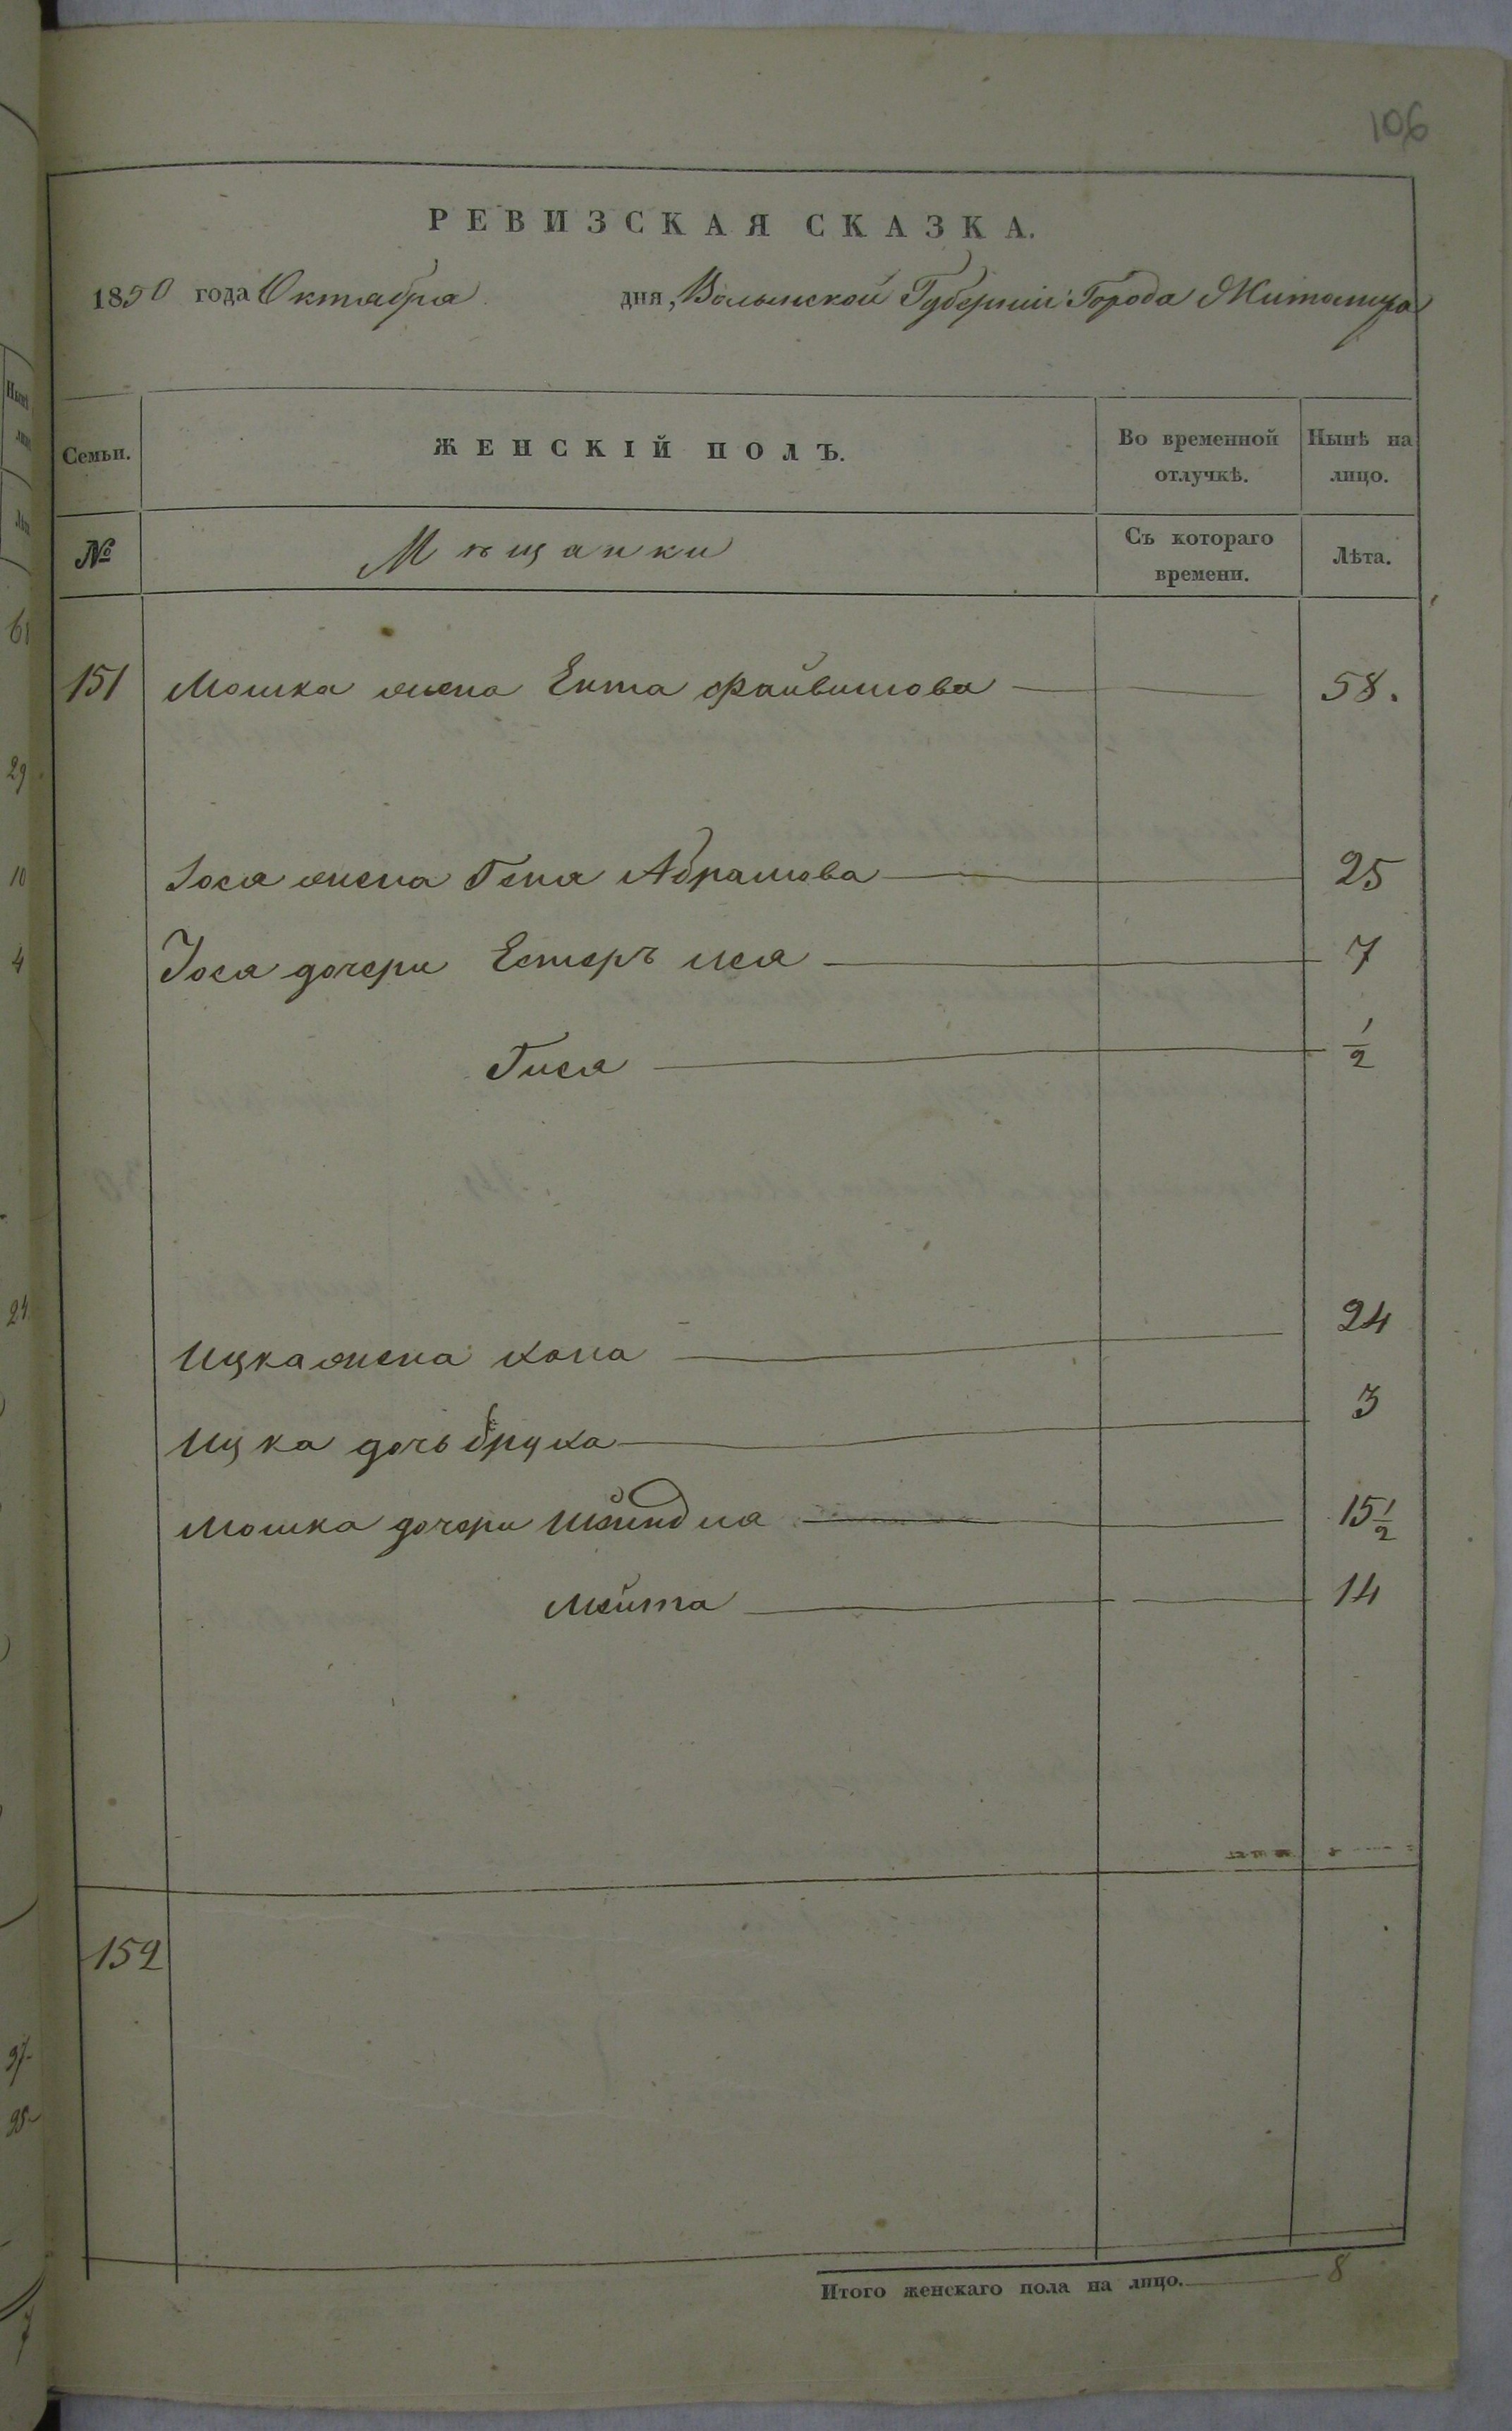 106
РЕВИЗСКАЯ СКАЗКА.
1850 года Октября дня, Волынской Губернии Города Житомира
Семьи. ЖЕНСКІЙ ПОЛЪ. Во временной отлучкѣ. Нынѣ на лицо.
№ Мѣщанки Съ котораго времени. Лѣта.
151 Мошка жена Ента Файвишова 58.
Іося жена Геня Абрамова 25
Іося дочери Естеръ Лея 7
Гися 1/2
Ицка жена Хана 24
Ицка дочь Бруха 3
Мошка дочери Шейндля 15 1/2
Мейта 14
152
Итого женскаго пола на лицо. 8